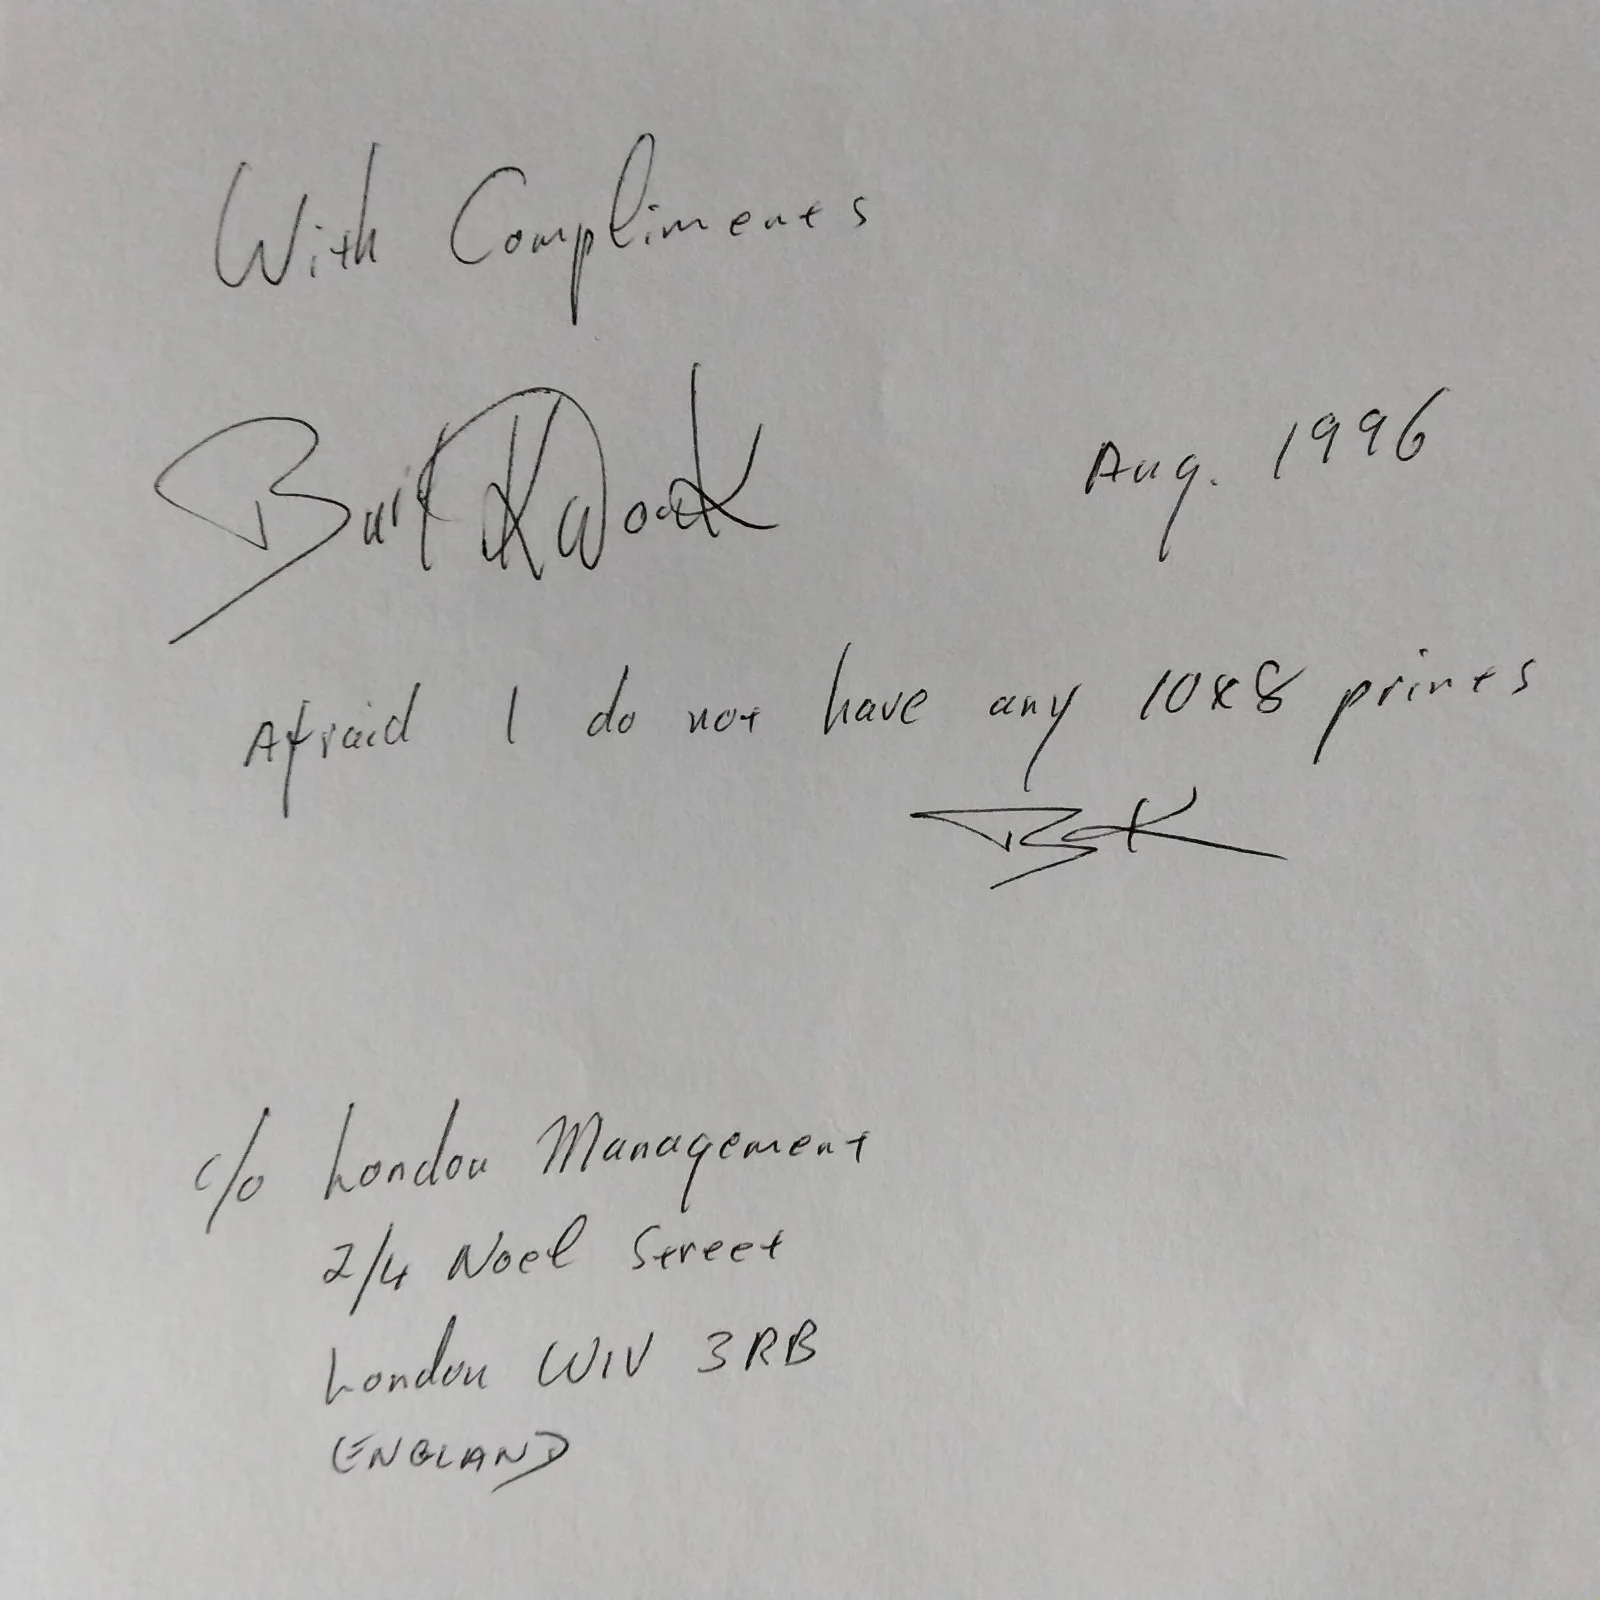 With Compliments
Burt Kwouk
Aug. 1996
Afraid I do not have any 10x8 prints
BK
c/o London Management
2/4 Noel Street
London W1V 3RB
ENGLAND